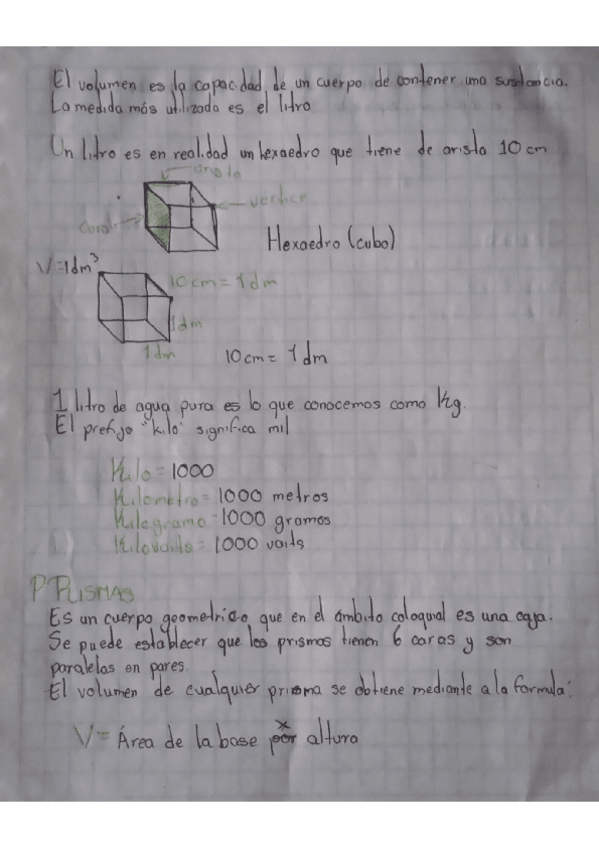 El volumen es la capacidad de un cuerpo de contener una sustancia.
La medida más utilizada es el litro
Un litro es en realidad un hexaedro que tiene de arista 10 cm
arista
vertice
Cara
Hexaedro (cubo)
V=1dm³
10cm = 1 dm
1dm
1dm
10cm = 1 dm
1 litro de agua pura es lo que conocemos como Kg.
El prefijo "kilo" significa mil
Kilo = 1000
Kilometro = 1000 metros
Kilogramo = 1000 gramos
Kilovolts = 1000 volts
PRISMAS
Es un cuerpo geometrico que en el ámbito coloquial es una caja.
Se puede establecer que los prismas tienen 6 caras y son
paralelas en pares.
El volumen de cualquier prisma se obtiene mediante a la formula:
V = Área de la base x altura